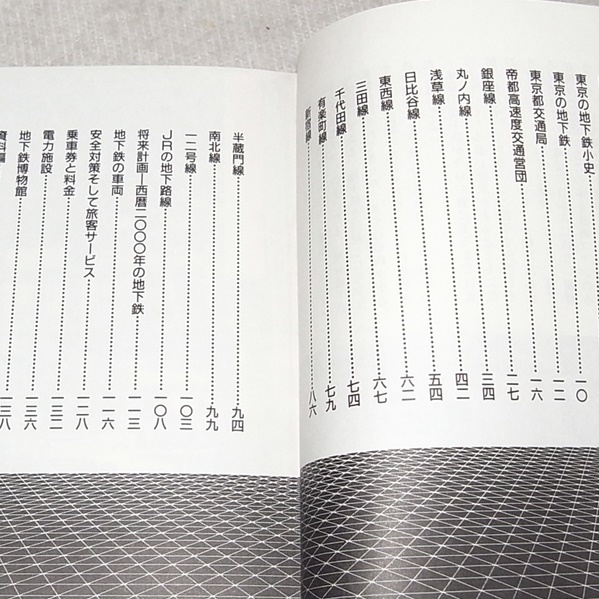 東京の地下鉄小史……一〇
東京の地下鉄……一二
東京都交通局……一六
帝都高速度交通営団……二七
銀座線……三四
丸ノ内線……四二
浅草線……五四
日比谷線……六二
東西線……六七
三田線……七四
千代田線……七九
有楽町線……八六
新宿線
半蔵門線……九四
南北線……九九
一二号線……一〇三
JRの地下路線……一〇八
将来計画―西暦二〇〇〇年の地下鉄……一一三
地下鉄の車両……一一六
安全対策そして旅客サービス……一二八
乗車券と料金……一三二
電力施設……一三六
地下鉄博物館……一三八
資料編